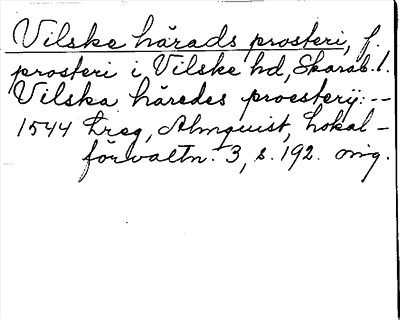 Vilske härads prosteri, f.
prosteri i Vilske hd, Skarab. l.
Vilska häredes proesterÿ: --
1544 Lreg, Almquist, Lokal-
förvaltn. 3, s. 192. orig.